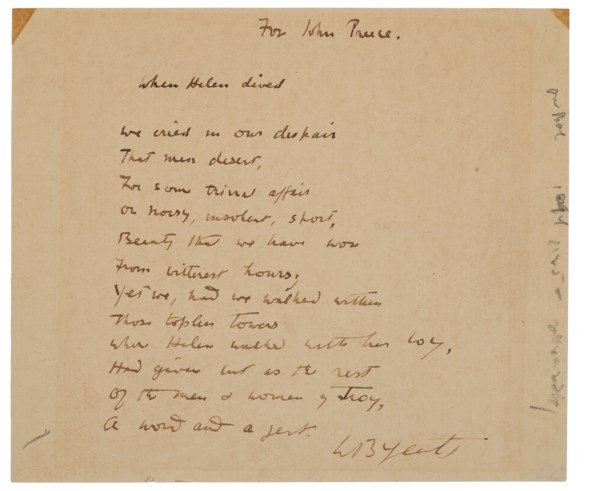 For John
When Helen lived
We cried in our despair
That men desert,
For some trivial affair
or noisy, insolent, sport,
Beauty that we have won
From bitterest hours;
Yet we, had we walked within
Those topless towers
where Helen walked with her boy,
Had given but as the rest
Of the men & women of Troy,
A word and a jest.
WB Yeats